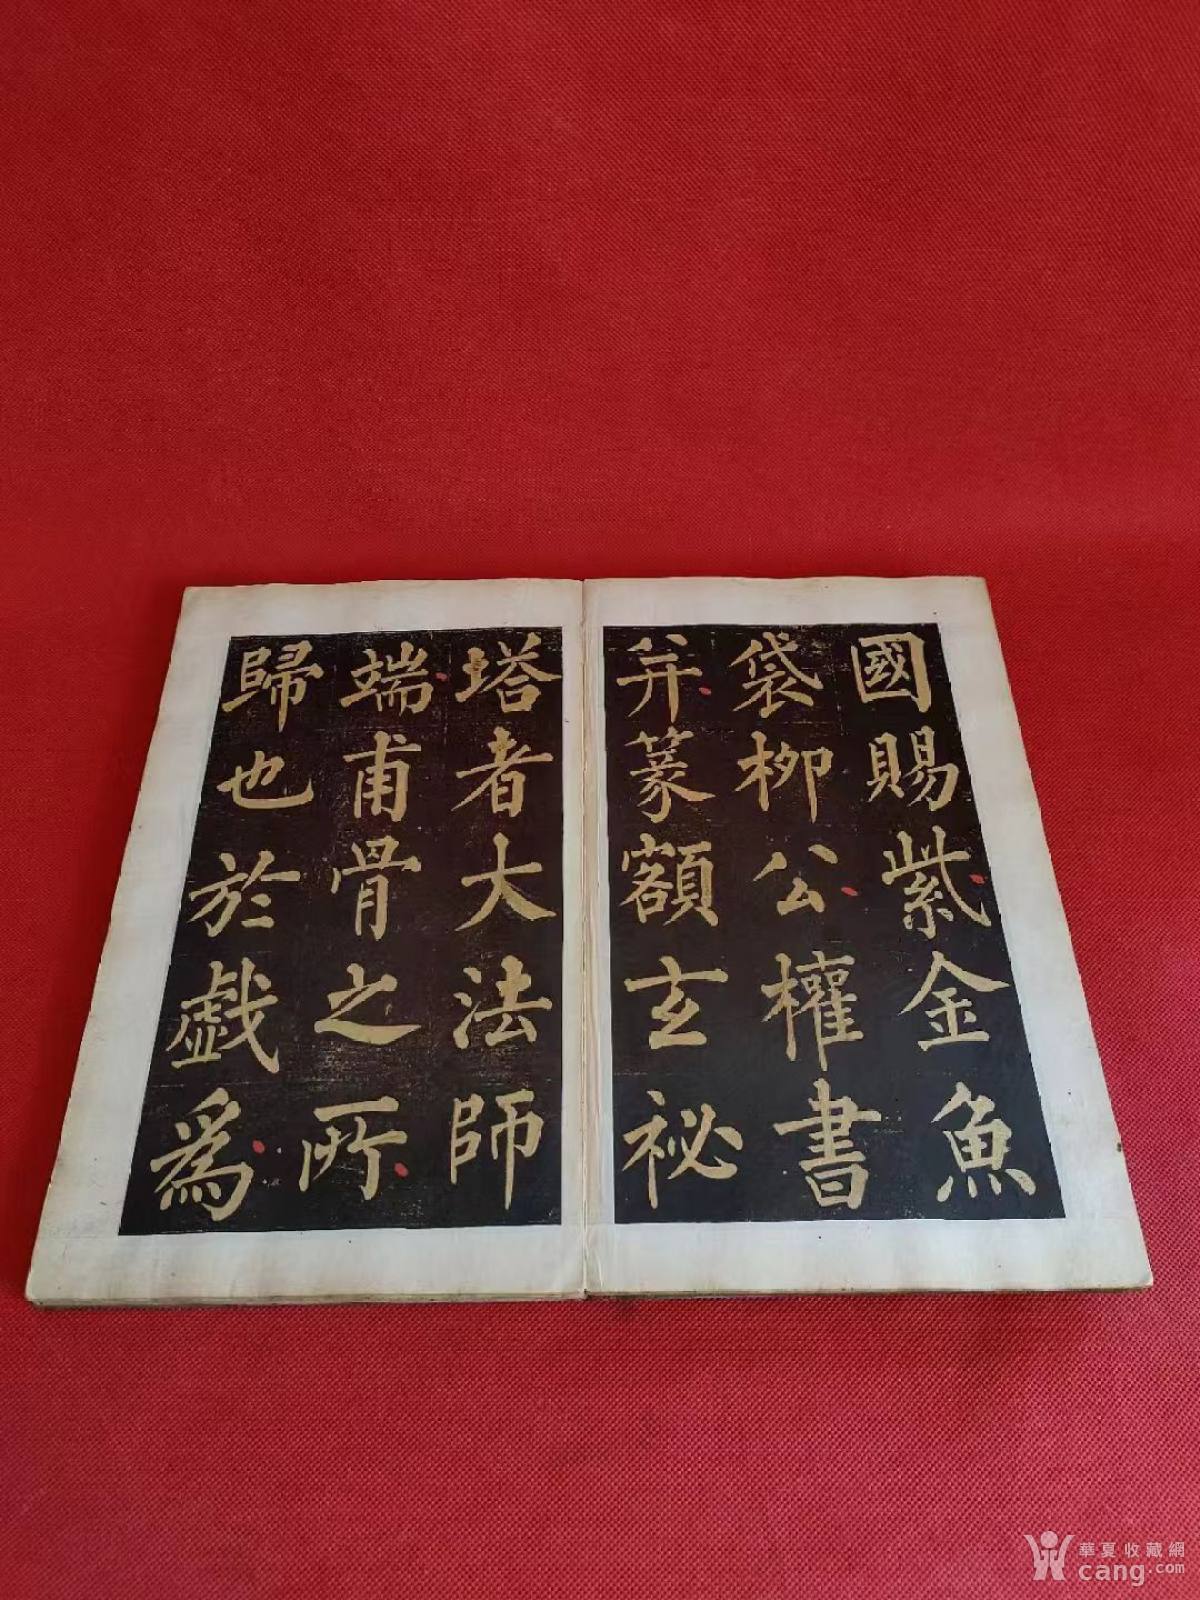 國賜紫金魚
袋柳公權書
并篆額玄祕
塔者大法師
端甫骨之所
歸也於戲為
華夏收藏網
cang.com